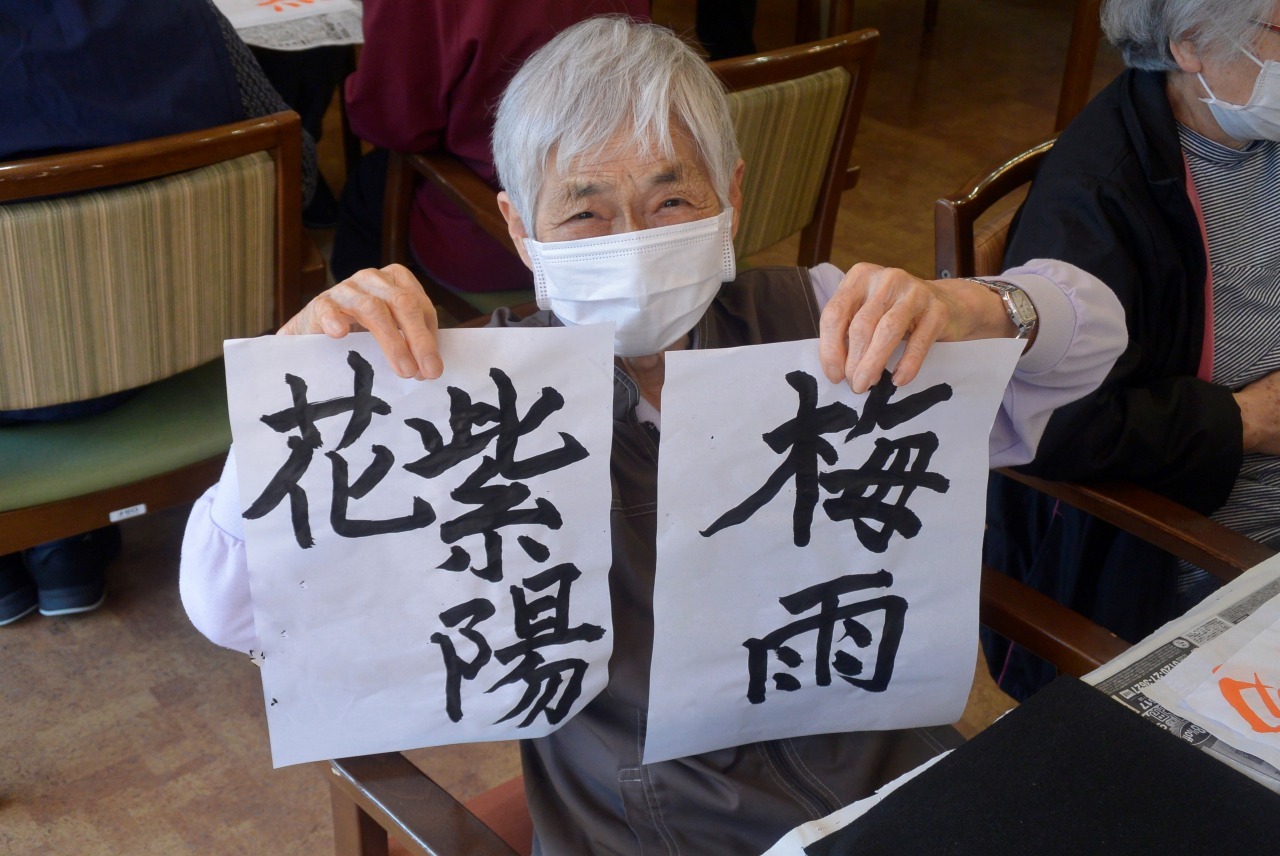 梅雨
紫陽
花